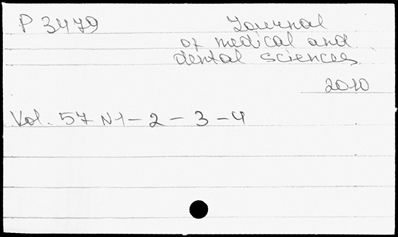 P 3479 Journal
of medical and
dental sciences
2010
Vol. 57 N1 - 2 - 3 - 4